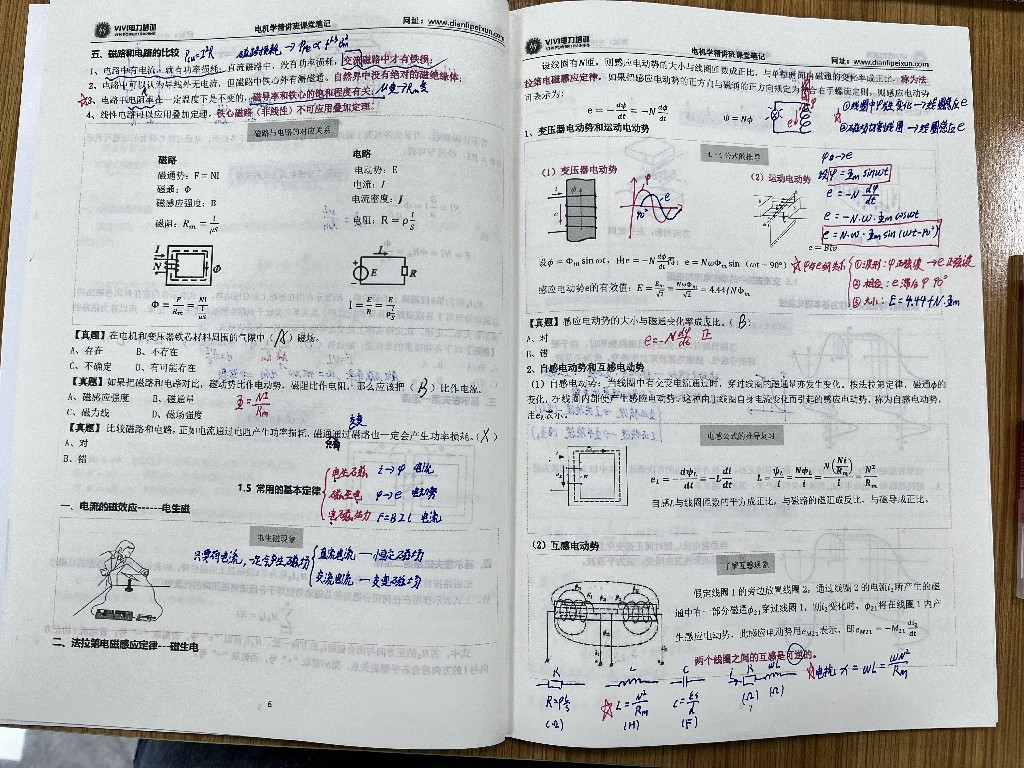 VIVI电力培训
电机学精讲班课堂笔记
网址：www.dianlipeixun.com
五、磁路和电路的比较
1、电路中有电流，就有功率损耗；直流磁路中，没有功率损耗，交流磁路中才有铁损；
2、电路中可以认为导线外无电流，但磁路中铁心外有漏磁通，自然界中没有绝对的磁绝缘体；
3、电路中电阻率在一定温度下是不变的，磁导率和铁心的饱和程度有关；
4、线性电路可以应用叠加定理，铁心磁路（非线性）不可应用叠加定理；
磁路与电路的对应关系
磁路
磁通势：F = NI
磁通：Φ
磁感应强度：B
磁阻：Rm = l/μS
电路
电动势：E
电流：I
电流密度：J
电阻：R = ρ l/S
I
N
Φ
I
E
R
Φ = F/Rm = NI/(l/μS)
I = E/R = E/(ρ l/S)
【真题】在电机和变压器铁芯材料周围的气隙中（A）磁场。
A、存在 B、不存在
C、不确定 D、有可能存在
【真题】如果把磁路和电路对比，磁动势比作电动势，磁阻比作电阻，那么应该把（B）比作电流。
A、磁感应强度 B、磁通量
C、磁力线 D、磁场强度
Φ = NI/Rm
【真题】比较磁路和电路，正如电流通过电阻产生功率损耗，磁通通过磁路也一定会产生功率损耗。（X）
A、对
B、错
1.5 常用的基本定律
i → φ 电流
φ → e 电动势
F = BIl 电流
一、电流的磁效应------电生磁
电生磁现象
只要有电流，一定会产生磁场
直流电流 — 恒定磁场
交流电流 — 交变磁场
二、法拉第电磁感应定律---磁生电
6
VIVI电力培训
电机学精讲班课堂笔记
网址：www.dianlipeixun.com
设线圈有N匝，则感应电动势的大小与线圈匝数成正比，与单位时间内磁通的变化率成正比，称为法
拉第电磁感应定律。如果把感应电动势的正方向与磁通的正方向规定为符合右手螺旋定则，则感应电动势
可表示为：
e = −dψ/dt = −N dφ/dt ψ = Nφ
①线圈中φ发生变化→线圈感应e
→线圈感应e
1、变压器电动势和运动电动势
4.44公式的推导
（1）变压器电动势
（2）运动电动势
φ
e
90°
e = Blv
φ → e
设φ = Φm sinωt
e = −N dφ/dt
e = −N·ω·Φm cosωt
e = N·ω·Φm sin(ωt−90°)
设φ = Φm sin ωt，由e = −N dφ/dt 得：e = NωΦm sin（ωt − 90°）
感应电动势e的有效值：E = Em/√2 = NωΦm/√2 = 4.44fNΦm
φ与e的关系
①波形：φ正弦波→e正弦波
②相位：e滞后φ 90°
③大小：E = 4.44fN·Φm
【真题】感应电动势的大小与磁通变化率成反比。（B）
A、对
B、错
e = −N dφ/dt 正
2、自感电动势和互感电动势
（1）自感电动势：当线圈中有交变电流通过时，穿过线圈的磁通量亦发生变化，根法拉第定律，磁通φ的
变化，在线圈内部便产生感应电动势，这种由于线圈自身电流变化而引起的感应电动势，称为自感电动势，
用eL表示。
电感公式的推导复习
eL = −dψL/dt = −L di/dt L = ψL/i = NφL/i = N(Ni/Rm)/i = N²/Rm
自感L与线圈匝数的平方成正比，与磁路的磁阻成反比、与磁导成正比。
（2）互感电动势
了解互感现象
假定线圈1的旁边放置线圈2，通过线圈2的电流i₂所产生的磁
通中有一部分磁通φ₂₁穿过线圈1，则i₂变化时，φ₂₁将在线圈1内产
生感应电动势，此感应电动势用eM21表示，即eM21 = −M21 di₂/dt
两个线圈之间的互感是可逆的。
R
R = ρl/S
(Ω)
L
L = N²/Rm
(H)
C
C = εS/d
(F)
R ωL
(Ω) (Ω)
电抗 x = ωL = ωN²/Rm